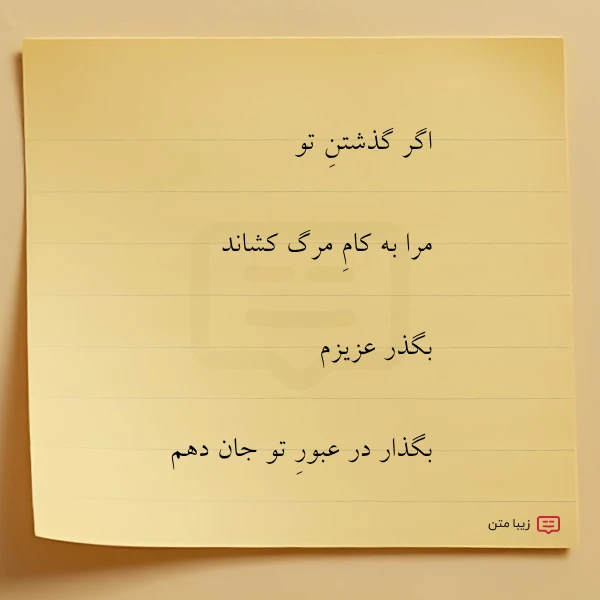 اگر گذشتنِ تو
مرا به کامِ مرگ کشاند
بگذر عزیزم
بگذار در عبورِ تو جان دهم
زیبا متن